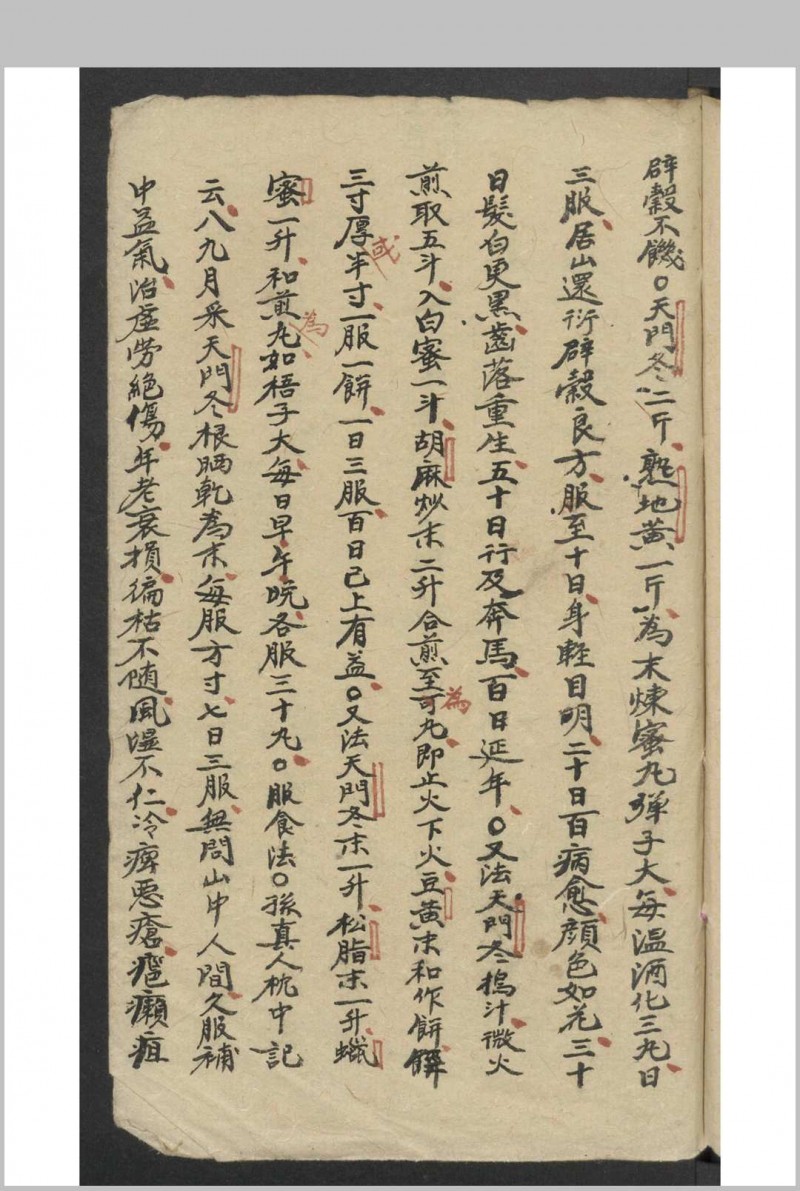 辟穀不饑○天門冬二斤熟地黃一斤為末煉蜜丸弹子大每温酒化三丸日
三服居山還行辟穀良方服至十日身輕目明二十日百病愈顔色如花三十
日髮白更黑齒落重生五十日行及奔馬百日延年○又法天門冬搗汁微火
煎取五斗入白蜜一斗胡麻炒末二升合煎至可丸即止火下火豆黃末和作餅
三寸厚半寸一服一餅一日三服百日已上有益○又法天門冬末一升松脂末一升蠟
蜜一升和煎丸如梧子大每日早午晚各服三十丸○服食法○孫真人枕中記
云八九月采天門冬根晒乾為末每服方寸七日三服無問山中人間久服補
中益氣治虛勞絕傷年老衰損偏枯不随風湿不仁冷痺恶瘡癰癩疽
或
為
為